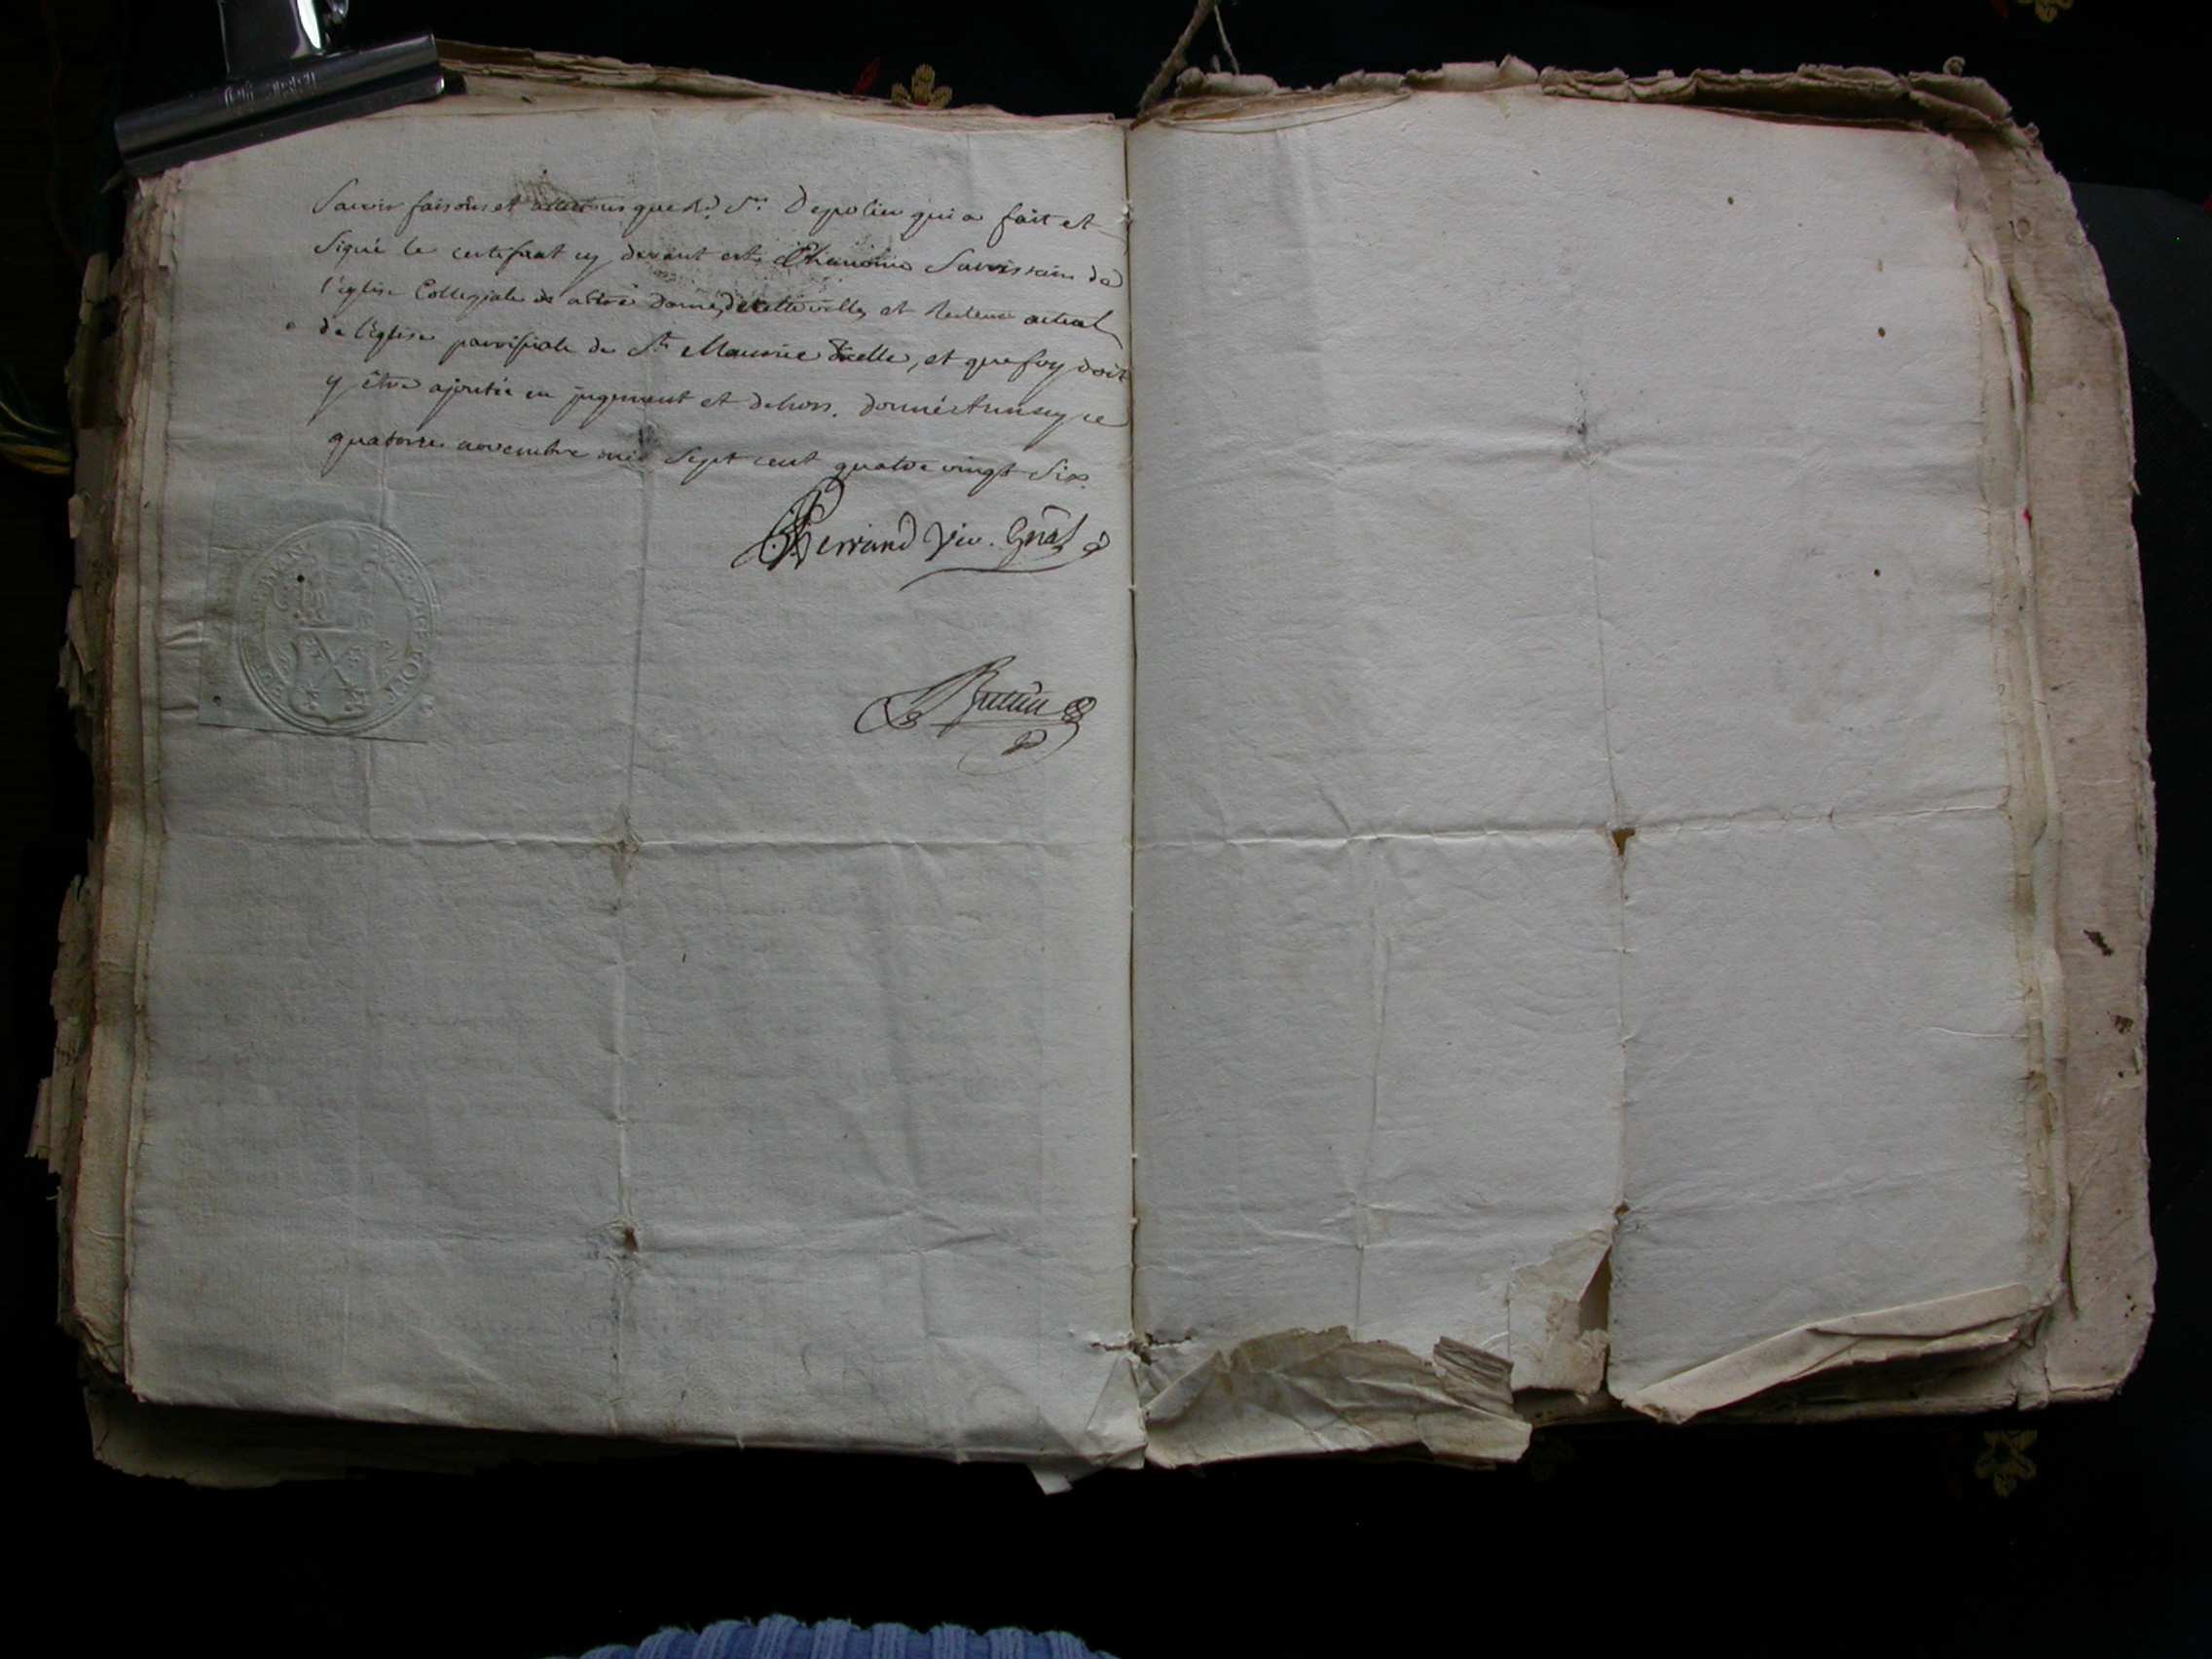 Savoir faisons et attestons que Rd. Sr. Depolieu qui a fait et
signé le certificat cy devant est Chanoine Sacristain de
l'église Collegiale de nôtre Dame de cette ville, et Recteur actuel
de l'église parroissiale de St. Maurice d'icelle, et que foy doit
y être ajoutée en jugement et dehors. donné à Annecy ce
quatorze novembre mil sept cent quatre vingt six.
Perriand Vic. Gnal